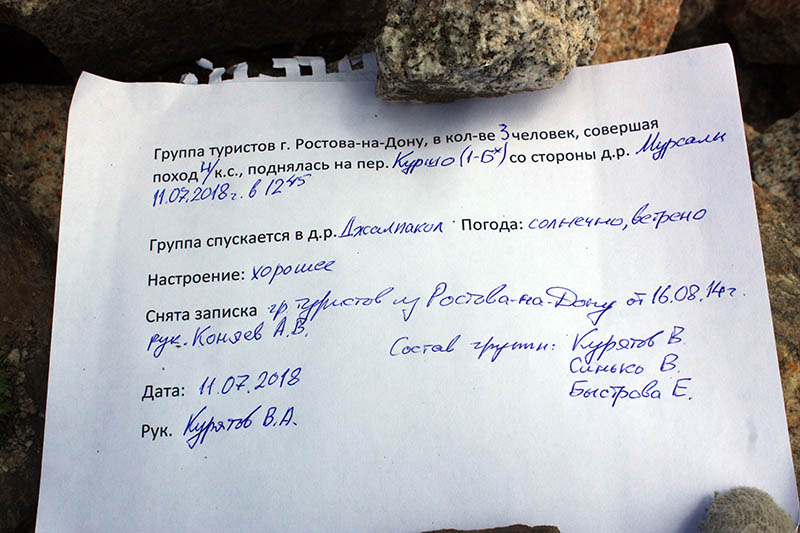 Группа туристов г. Ростова-на-Дону, в кол-ве 3 человек, совершая
поход 4/ к.с., поднялась на пер. Куршо (1-Б*) со стороны д.р. Мурсалы
11.07.2018г. в 12 45
Группа спускается в д.р. Джалпакол Погода: солнечно, ветрено
Настроение: хорошее
Снята записка гр. туристов из Ростова-на-Дону от 16.08.14г.
рук. Коняев А.В.
Состав группы: Курятов В.
Синько В.
Быстрова Е.
Дата: 11.07.2018
Рук. Курятов В.А.